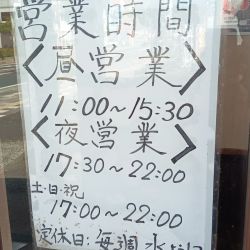 営業時間
〈昼営業〉
11:00～15:30
〈夜営業〉
17:30～22:00
土・日・祝
17:00～22:00
定休日:毎週水